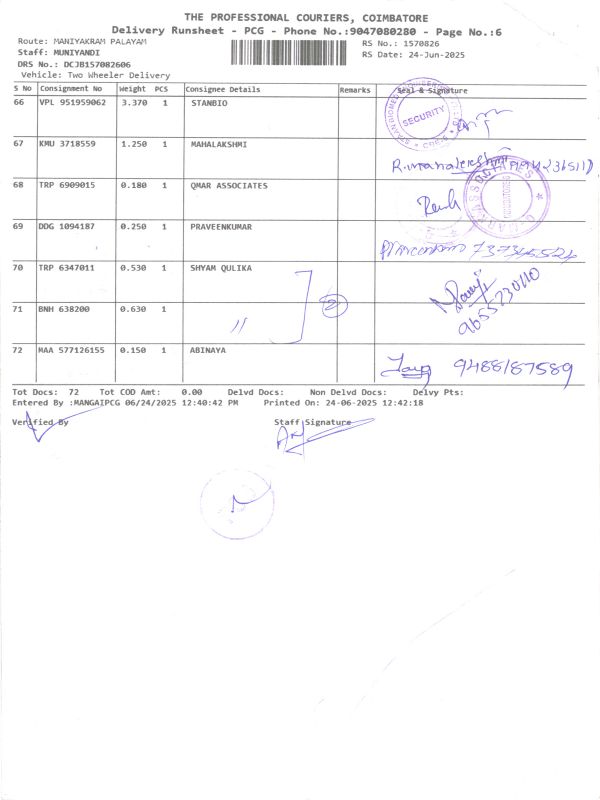 THE PROFESSIONAL COURIERS, COIMBATORE
Delivery Runsheet - PCG - Phone No.:9047080280 - Page No.:6
Route: MANIYAKRAM PALAYAM
Staff: MUNIYANDI
DRS No.: DCJB157082606
Vehicle: Two Wheeler Delivery
RS No.: 1570826
RS Date: 24-Jun-2025
S No Consignment No Weight PCS Consignee Details Remarks Seal & Signature
66 VPL 951959062 3.370 1 STANBIO
SECURITY
67 KMU 3718559 1.250 1 MAHALAKSHMI
68 TRP 6909015 0.180 1 QMAR ASSOCIATES
69 DDG 1094187 0.250 1 PRAVEENKUMAR
70 TRP 6347011 0.530 1 SHYAM QULIKA
71 BNH 638200 0.630 1
〃 2
72 MAA 577126155 0.150 1 ABINAYA 9488187589
Tot Docs: 72 Tot COD Amt: 0.00 Delvd Docs: Non Delvd Docs: Delvy Pts:
Entered By :MANGAIPCG 06/24/2025 12:40:42 PM Printed On: 24-06-2025 12:42:18
Verified By Staff Signature